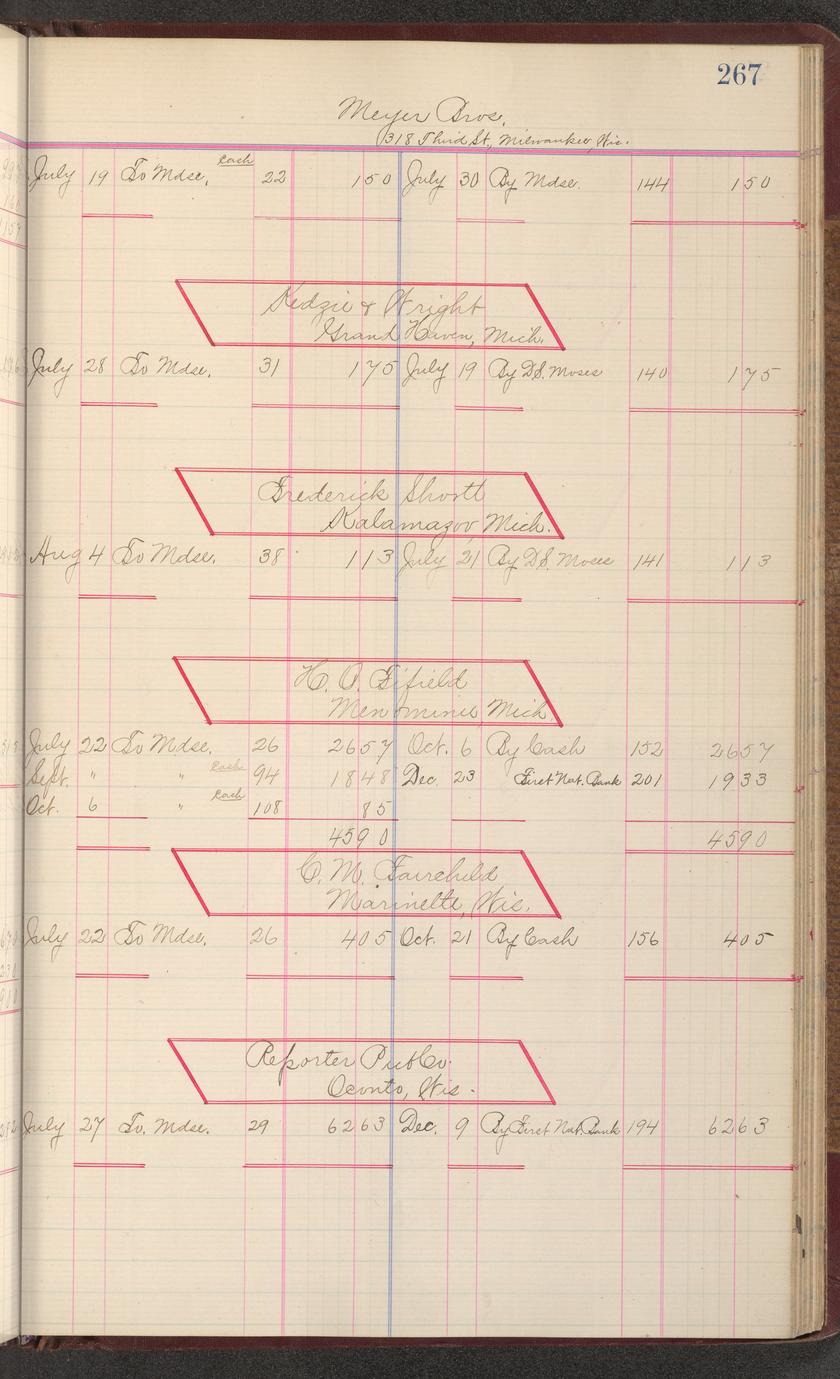 267
Meyer Bros.
318 Third St., Milwaukee, Wis.
July 19 To Mdse. Cash 22 150 July 30 By Mdse. 144 150
Kedzie & Wright
Grand Haven, Mich.
July 28 To Mdse. 31 175 July 19 By D.S. Moses 140 175
Frederick Shortt
Kalamazoo, Mich.
Aug 4 To Mdse. 38 113 July 21 By D.S. Moses 141 113
H. O. Fifield
Menominee, Mich.
July 22 To Mdse. 26 2657 Oct. 6 By Cash 152 2657
Sept. " " Cash 94 1848 Dec. 23 First Nat. Bank 201 1933
Oct. 6 " Cash 108 85
4590 4590
C. M. Fairchild
Marinette, Wis.
July 22 To Mdse. 26 405 Oct. 21 By Cash 156 405
Reporter Pub Co.
Oconto, Wis.
July 27 To. Mdse. 29 6263 Dec. 9 By First Nat. Bank 194 6263